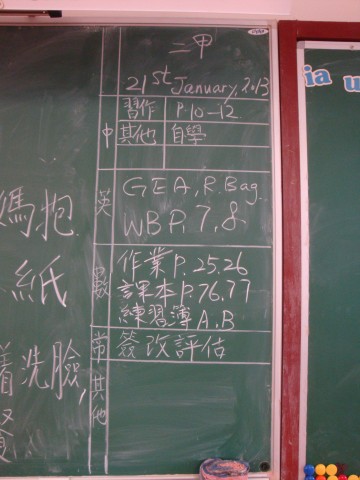 二甲
21st January, 2013
中
習作 P.10-12
其他 自學
英
GEA, R.Bag
WBP, 7, 8
數
作業 P.25,26
課本 P.76,77
練習簿 A, B
常
簽改評估
其他
媽抱
紙
着洗臉,
ia u